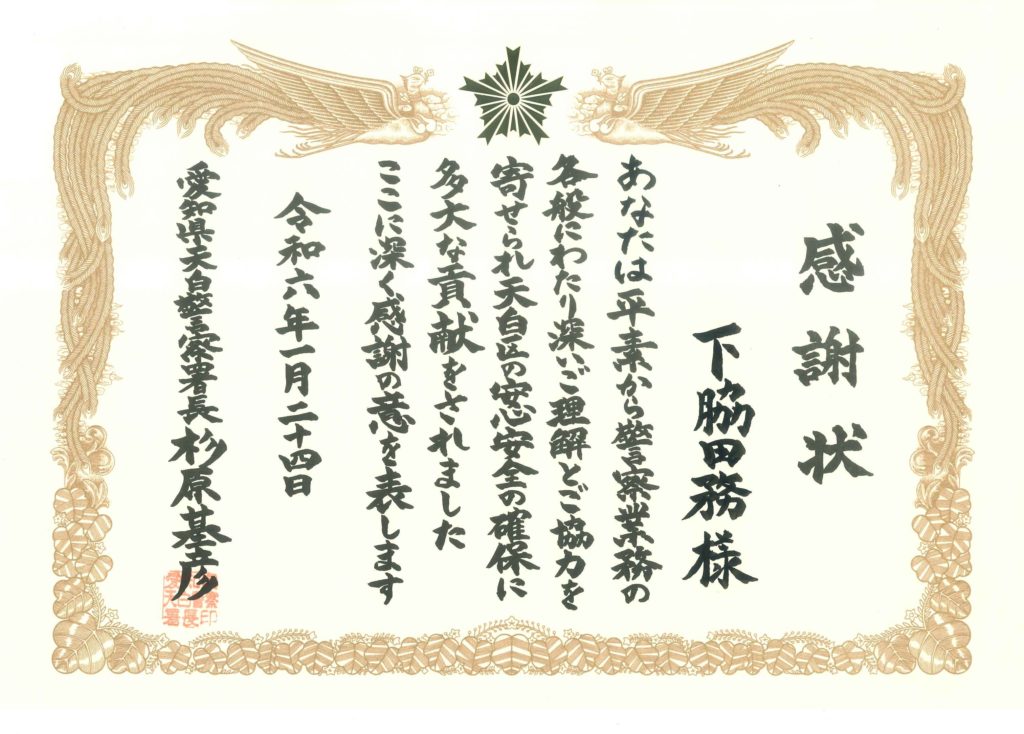 感謝状
下脇田務様
あなたは平素から警察業務の
各般にわたり深いご理解とご協力を
寄せられ天白区の安心安全の確保に
多大な貢献をされました
ここに深く感謝の意を表します
令和六年一月二十四日
愛知県天白警察署長 杉原基彦